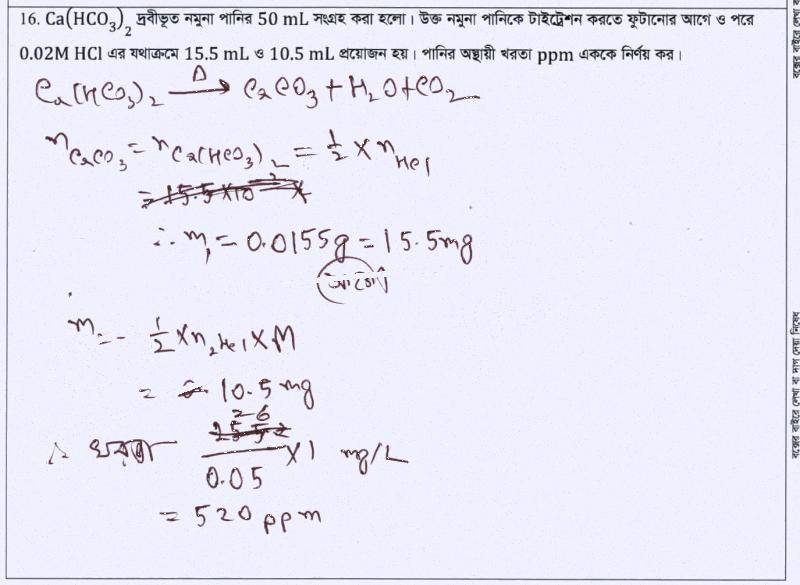 16. Ca(HCO₃)₂ দ্রবীভূত নমুনা পানির 50 mL সংগ্রহ করা হলো। উক্ত নমুনা পানিকে টাইট্রেশন করতে ফুটানোর আগে ও পরে
0.02M HCl এর যথাক্রমে 15.5 mL ও 10.5 mL প্রয়োজন হয়। পানির অস্থায়ী খরতা ppm এককে নির্ণয় কর।
Ca(HCO₃)₂ —Δ→ CaCO₃ + H₂O + CO₂
n CaCO₃ = n Ca(HCO₃)₂ = 1/2 × n HCl
∴ m₁ = 0.0155g = 15.5mg
m = 1/2 × n₂HCl × M
= 10.5 mg
∴ খরতা 26/0.05 × 1 mg/L
= 520 ppm